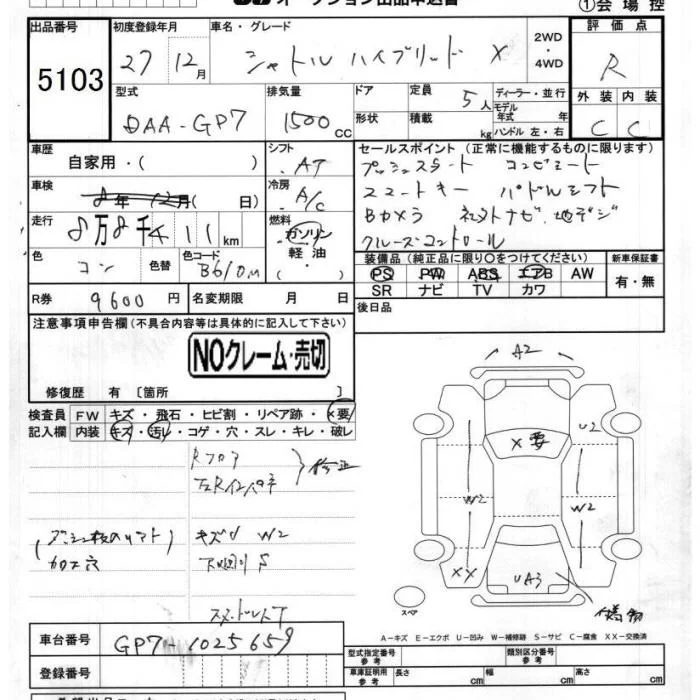 オークション出品申込書
①会場控
出品番号
5103
初度登録年月
27 12月
車名・グレード
シャトル ハイブリッド X
2WD
・
4WD
評価点
R
型式
DAA-GP7
排気量
1500 CC
ドア
形状
定員
5人
積載
kg
ディーラー・並行
モデル
年式 年
ハンドル 左・右
外装 内装
C C
車歴
自家用・( )
シフト
AT
セールスポイント (正常に機能するものに限ります)
プッシュスタート
スマートキー パドルシフト
Bカメラ ナビ 地デジ
クルーズコントロール
車検
8年 12月( 日)
冷房
A/C
走行
8万8千411km
燃料
ガソリン
軽油
( )
色
コン
色替
色コード
B610M
装備品 (純正品に限り○をつけてください)
新車保証書
PS PW ABS エアB AW
SR ナビ TV カワ
有・無
R券 9600円
名変期限 月 日
後日品
注意事項申告欄 (不具合内容等は具体的に記入して下さい)
NOクレーム・売切
修復歴 有 [箇所 ]
検査員
記入欄
FW キズ・飛石・ヒビ割・リペア跡・×要
内装 キズ・汚し・コゲ・穴・スレ・キレ・破レ
Rフロア
修正
加工穴
キズ W2
S
A2
U2
X要
W2
W2
XX
UA3
スペア
A－キズ E－エクボ U－凹み W－補修跡 S－サビ C－腐食 XX－交換済
車台番号
GP7 1025659
登録番号
型式指定番号
参考
類別区分番号
参考
車庫証明用
参考
長さ cm 幅 cm 高さ cm